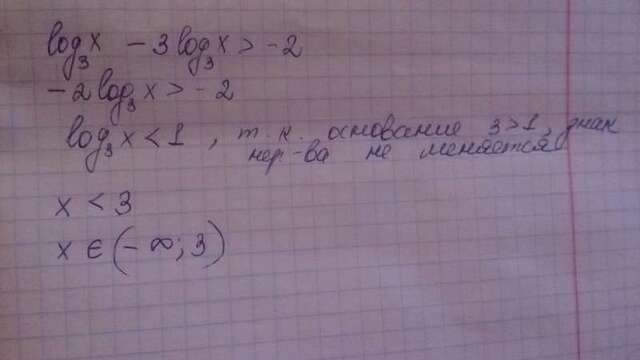 log₃x - 3log₃x > -2
-2log₃x > -2
log₃x < 1, т.к. основание 3>1, знак
нер-ва не меняется
x < 3
x ∈ (-∞; 3)